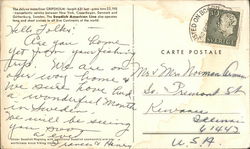 The deluxe motorliner GRIPSHOLM - length 631 feet - gross tons 23,190
- transatlantic service between New York, Copenhagen, Denmark and
Gothenburg, Sweden. The Swedish American Line also operates
long and short cruises to all five Continents of the world.
Hello Folks:
Are you home
yet from your fishing
trip. We are on
our way home &
we sure have had
a wonderful month
in Sweden
We will be seeing
you soon
Love
Frances & Henry
POSTED ON BOARD
CARTE POSTALE
Mr & Mrs Norman
So. Tremont St
Kewanee
Illinois
61443
U.S.A.